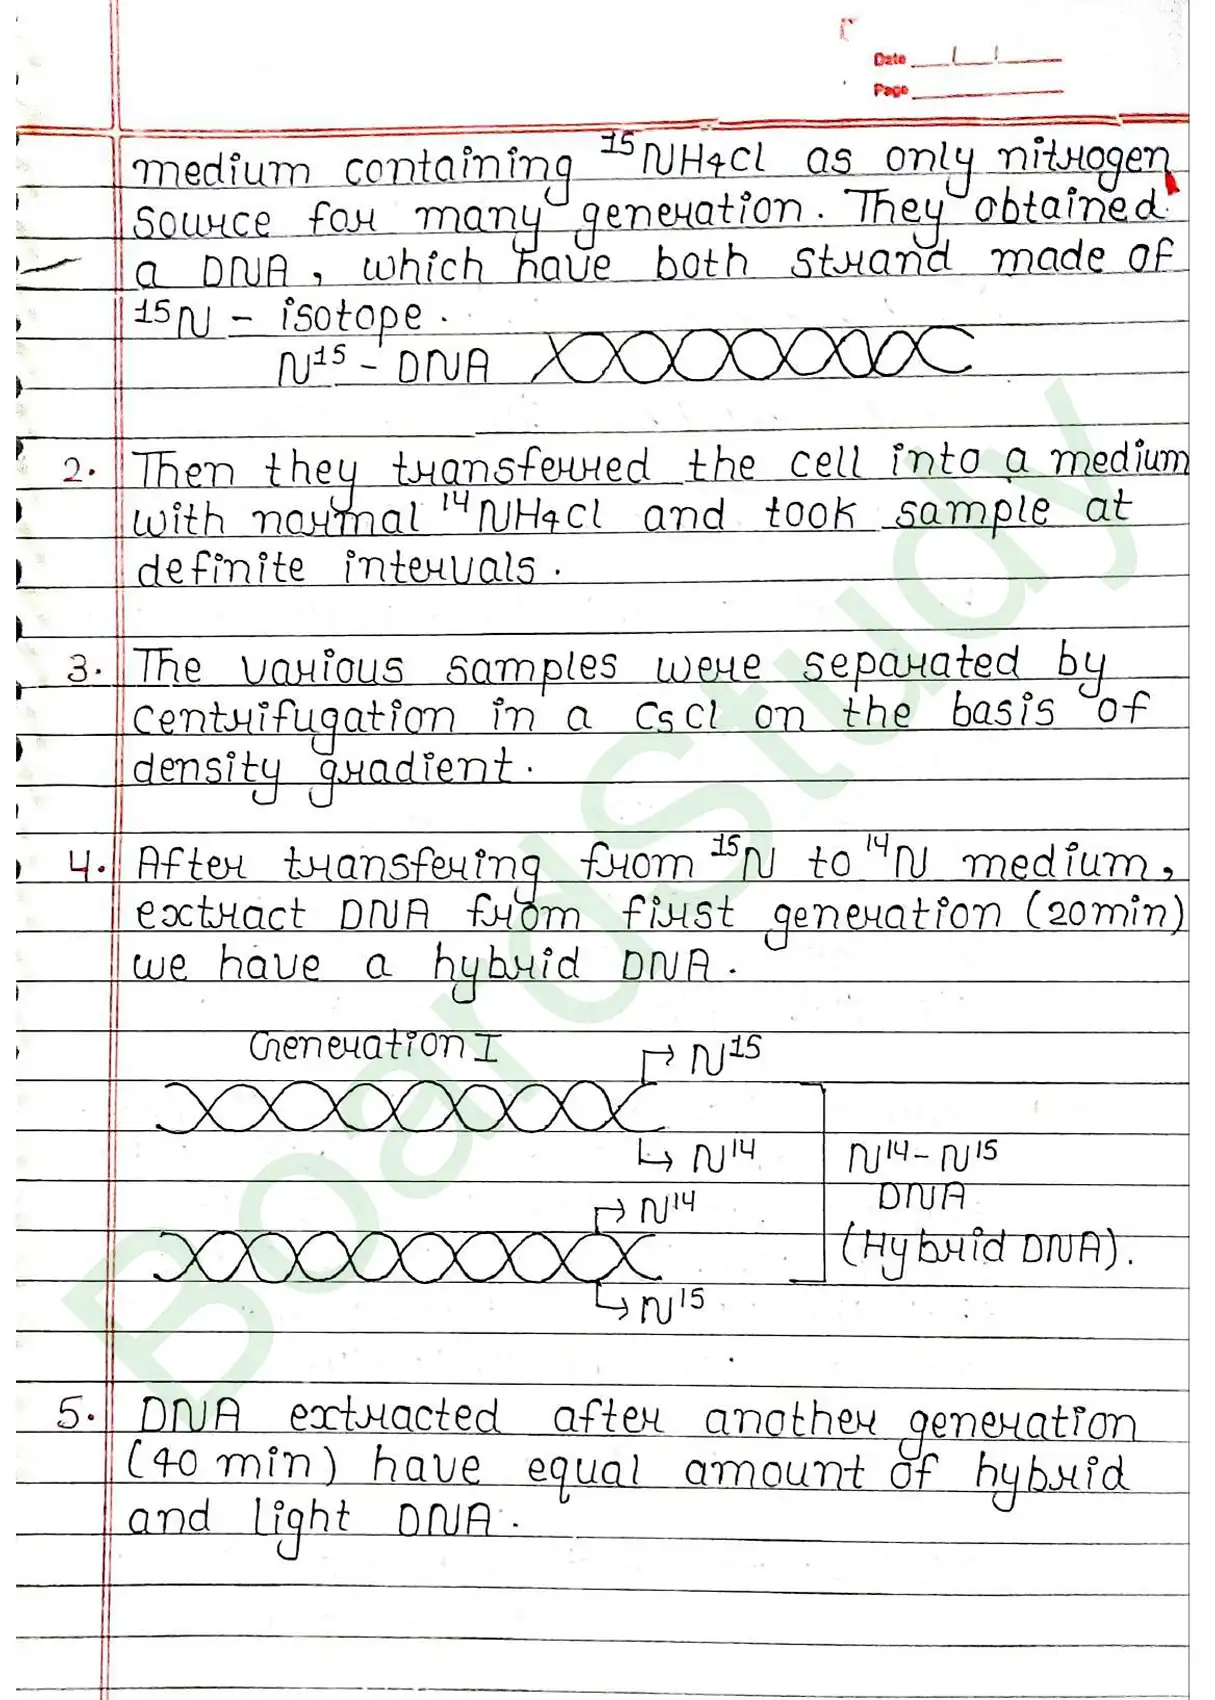 Date
Page
medium containing ¹⁵NH₄Cl as only nitrogen
source for many generation. They obtained
a DNA, which have both strand made of
¹⁵N - isotope.
N¹⁵ - DNA
2. Then they transferred the cell into a medium
with normal ¹⁴NH₄Cl and took sample at
definite intervals.
3. The various samples were separated by
centrifugation in a CsCl on the basis of
density gradient.
4. After transfering from ¹⁵N to ¹⁴N medium,
extract DNA from first generation (20min)
we have a hybrid DNA.
Generation I
N¹⁵
N¹⁴
N¹⁴
N¹⁵
N¹⁴- N¹⁵
DNA
(Hybrid DNA).
5. DNA extracted after another generation
(40 min) have equal amount of hybrid
and light DNA.
BoardStudy